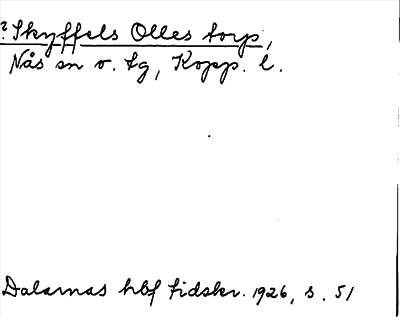 ? Skyffels Olles torp,
Nås sn v. tg, Kopp. l.
Dalarnas hbf tidskr. 1926, s. 51